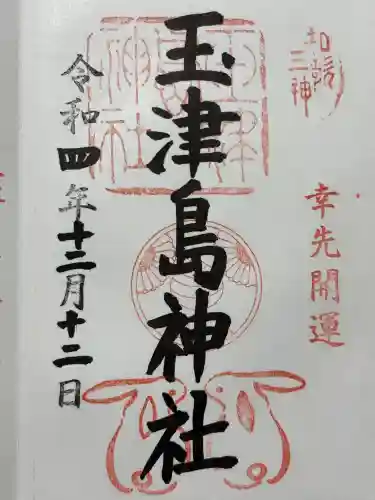 和歌
三神
幸先開運
玉津島神社
令和四年十二月十二日